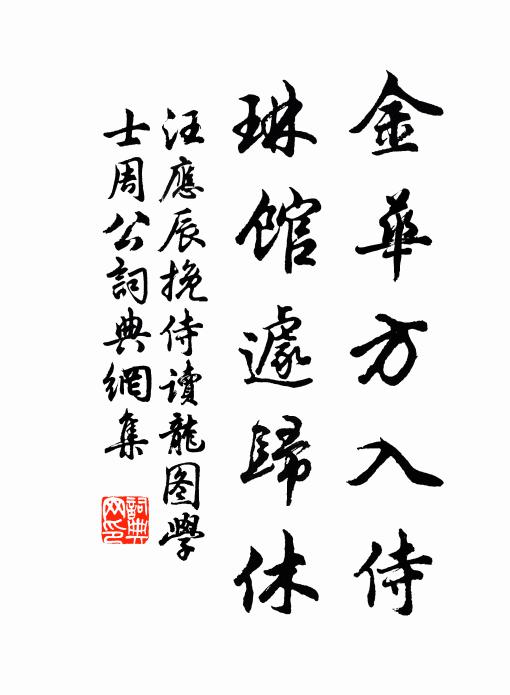 金華方入侍
琳館遽歸休
汪應辰挽侍讀龍图學
士周公詞典網集
詞典网印